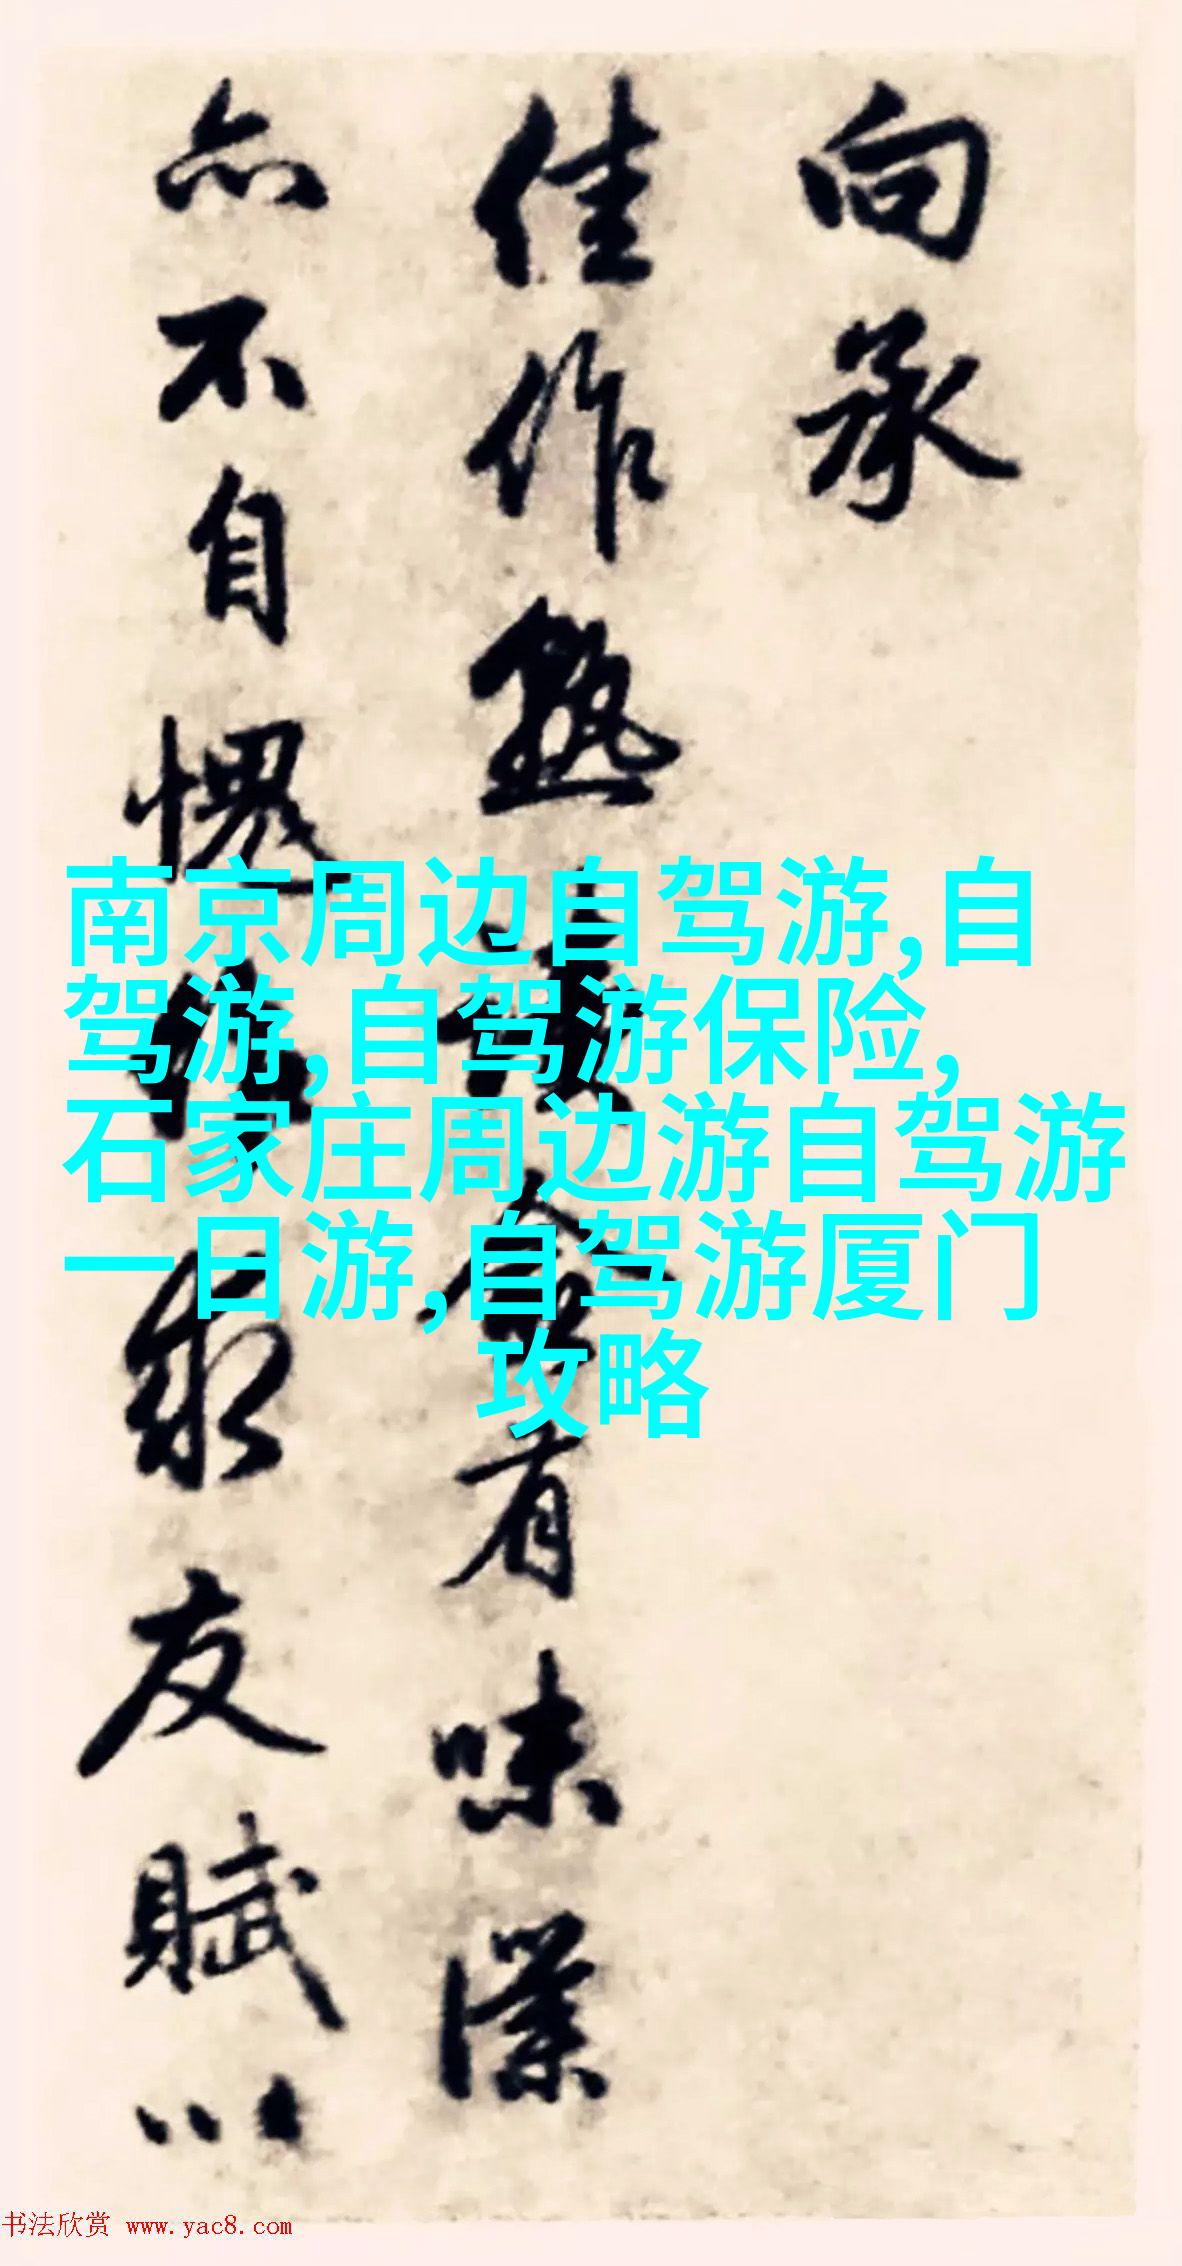 向承
佳作熟读愈有味仆
亦不自愧
友赋以
南京周边自驾游,自
驾游,自驾游保险,
石家庄周边游自驾游
一日游,自驾游厦门
攻略
书法欣赏 www.yac8.com